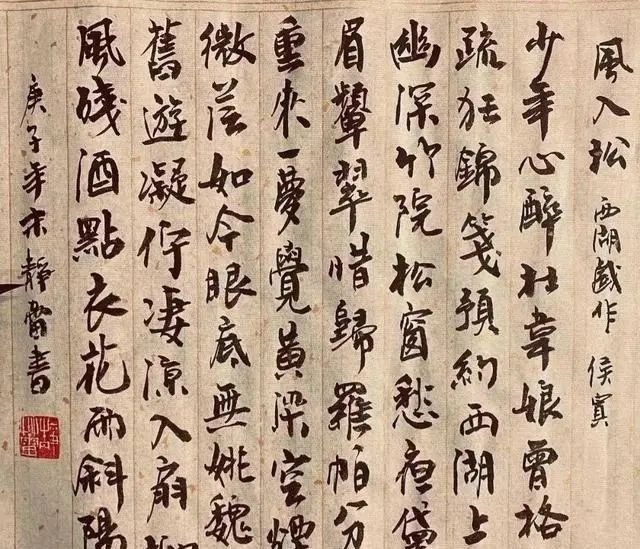 風入松 西湖戲作 侯寘
少年心醉杜韋娘曾格
疏狂錦箋預約西湖上
幽深竹院松窗愁夜黛
眉顰翠惜歸羅帕分
重來一夢覺黃粱空煙
微茫如今眼底無姚魏
舊遊凝佇凄涼入扇
風殘酒點衣花雨斜陽
庚子年末靜蕾書